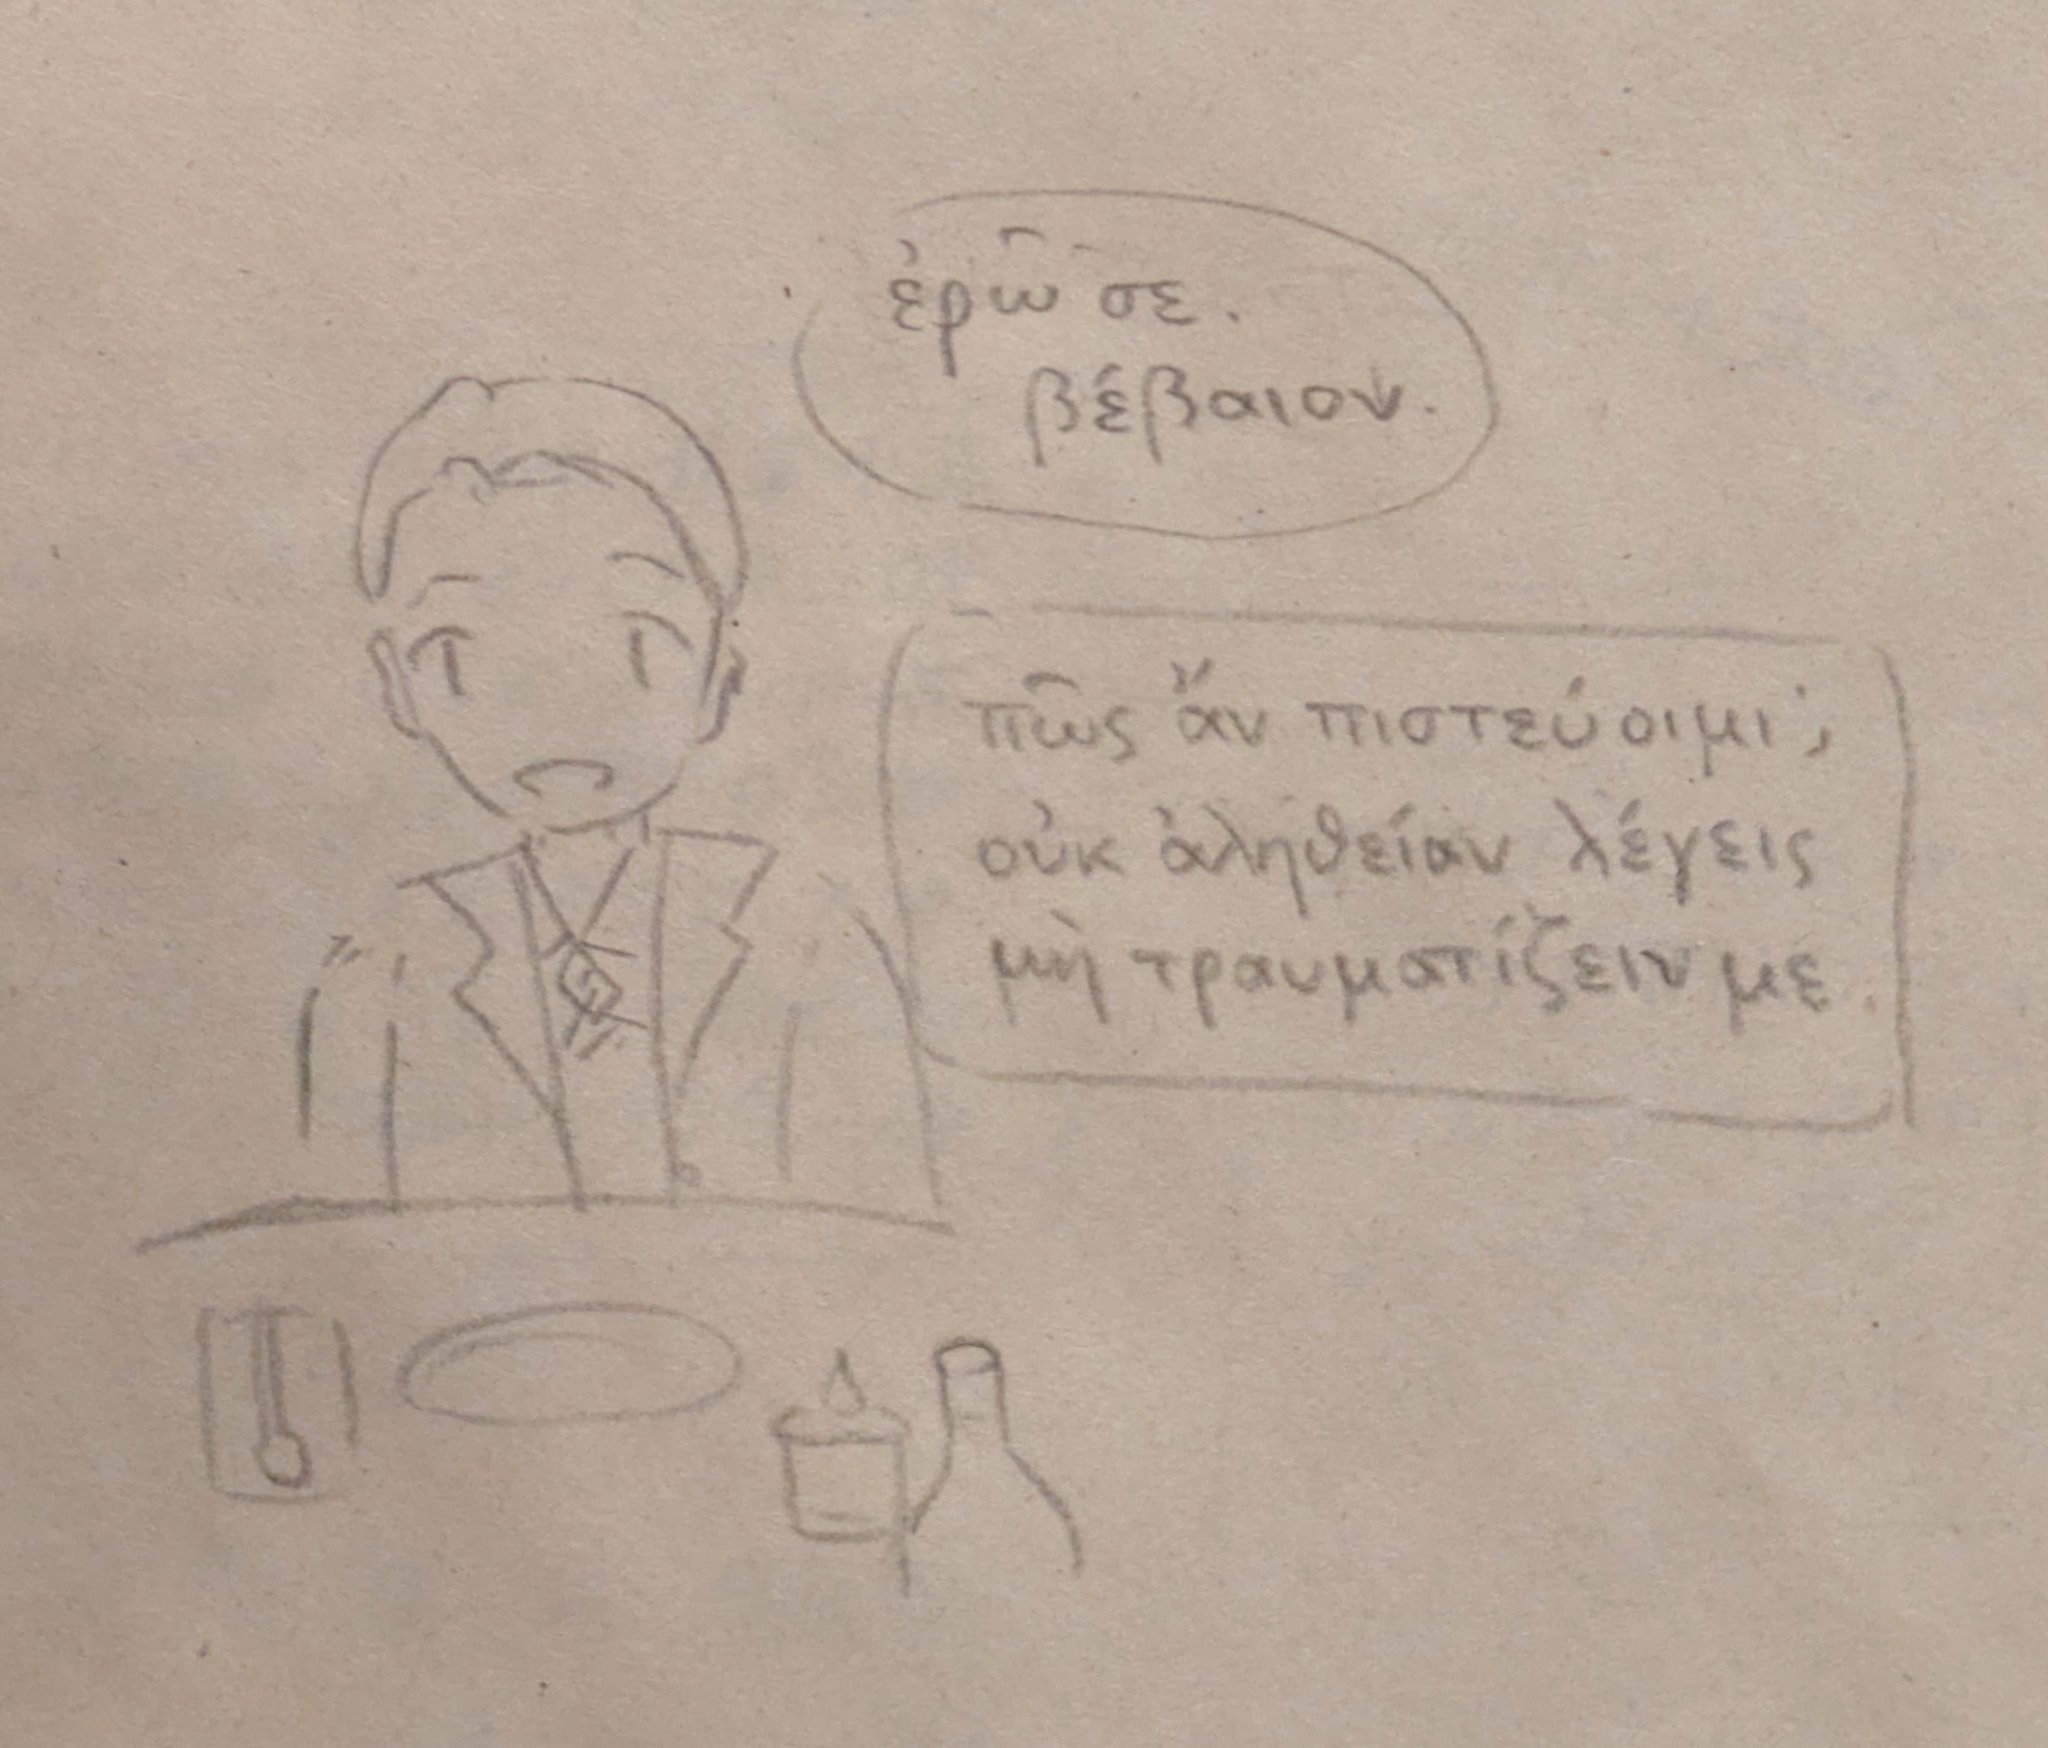 ἐρῶ σε.
βέβαιον.
πῶς ἄν πιστεύοιμι;
οὐκ ἀληθείαν λέγεις
μὴ τραυματίζειν με.